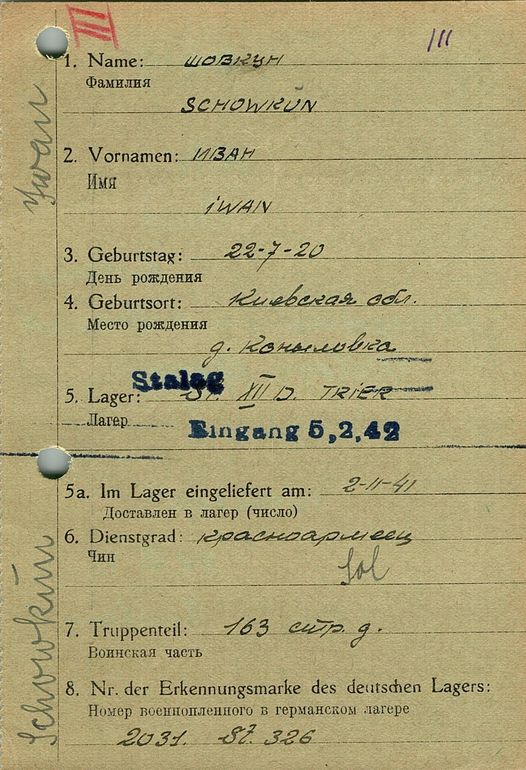 III
III
1. Name: ШОВКУН
Фамилия
SCHOWKÚN
2. Vornamen: ИВАН
Имя
IWAN
3. Geburtstag: 22-7-20
День рождения
4. Geburtsort: Киевская обл.
Место рождения
д. Копыловка
Stalag
5. Lager: St. XII D. TRIER
Лагер
Eingang 5,2,42
5a. Im Lager eingeliefert am: 2-11-41
Доставлен в лагер (число)
6. Dienstgrad: красноармеец
Чин
Sol
7. Truppenteil: 163 стр. д.
Воинская часть
8. Nr. der Erkennungsmarke des deutschen Lagers:
Номер военнопленного в германском лагере
2031. St. 326
Iwan
Schowkún